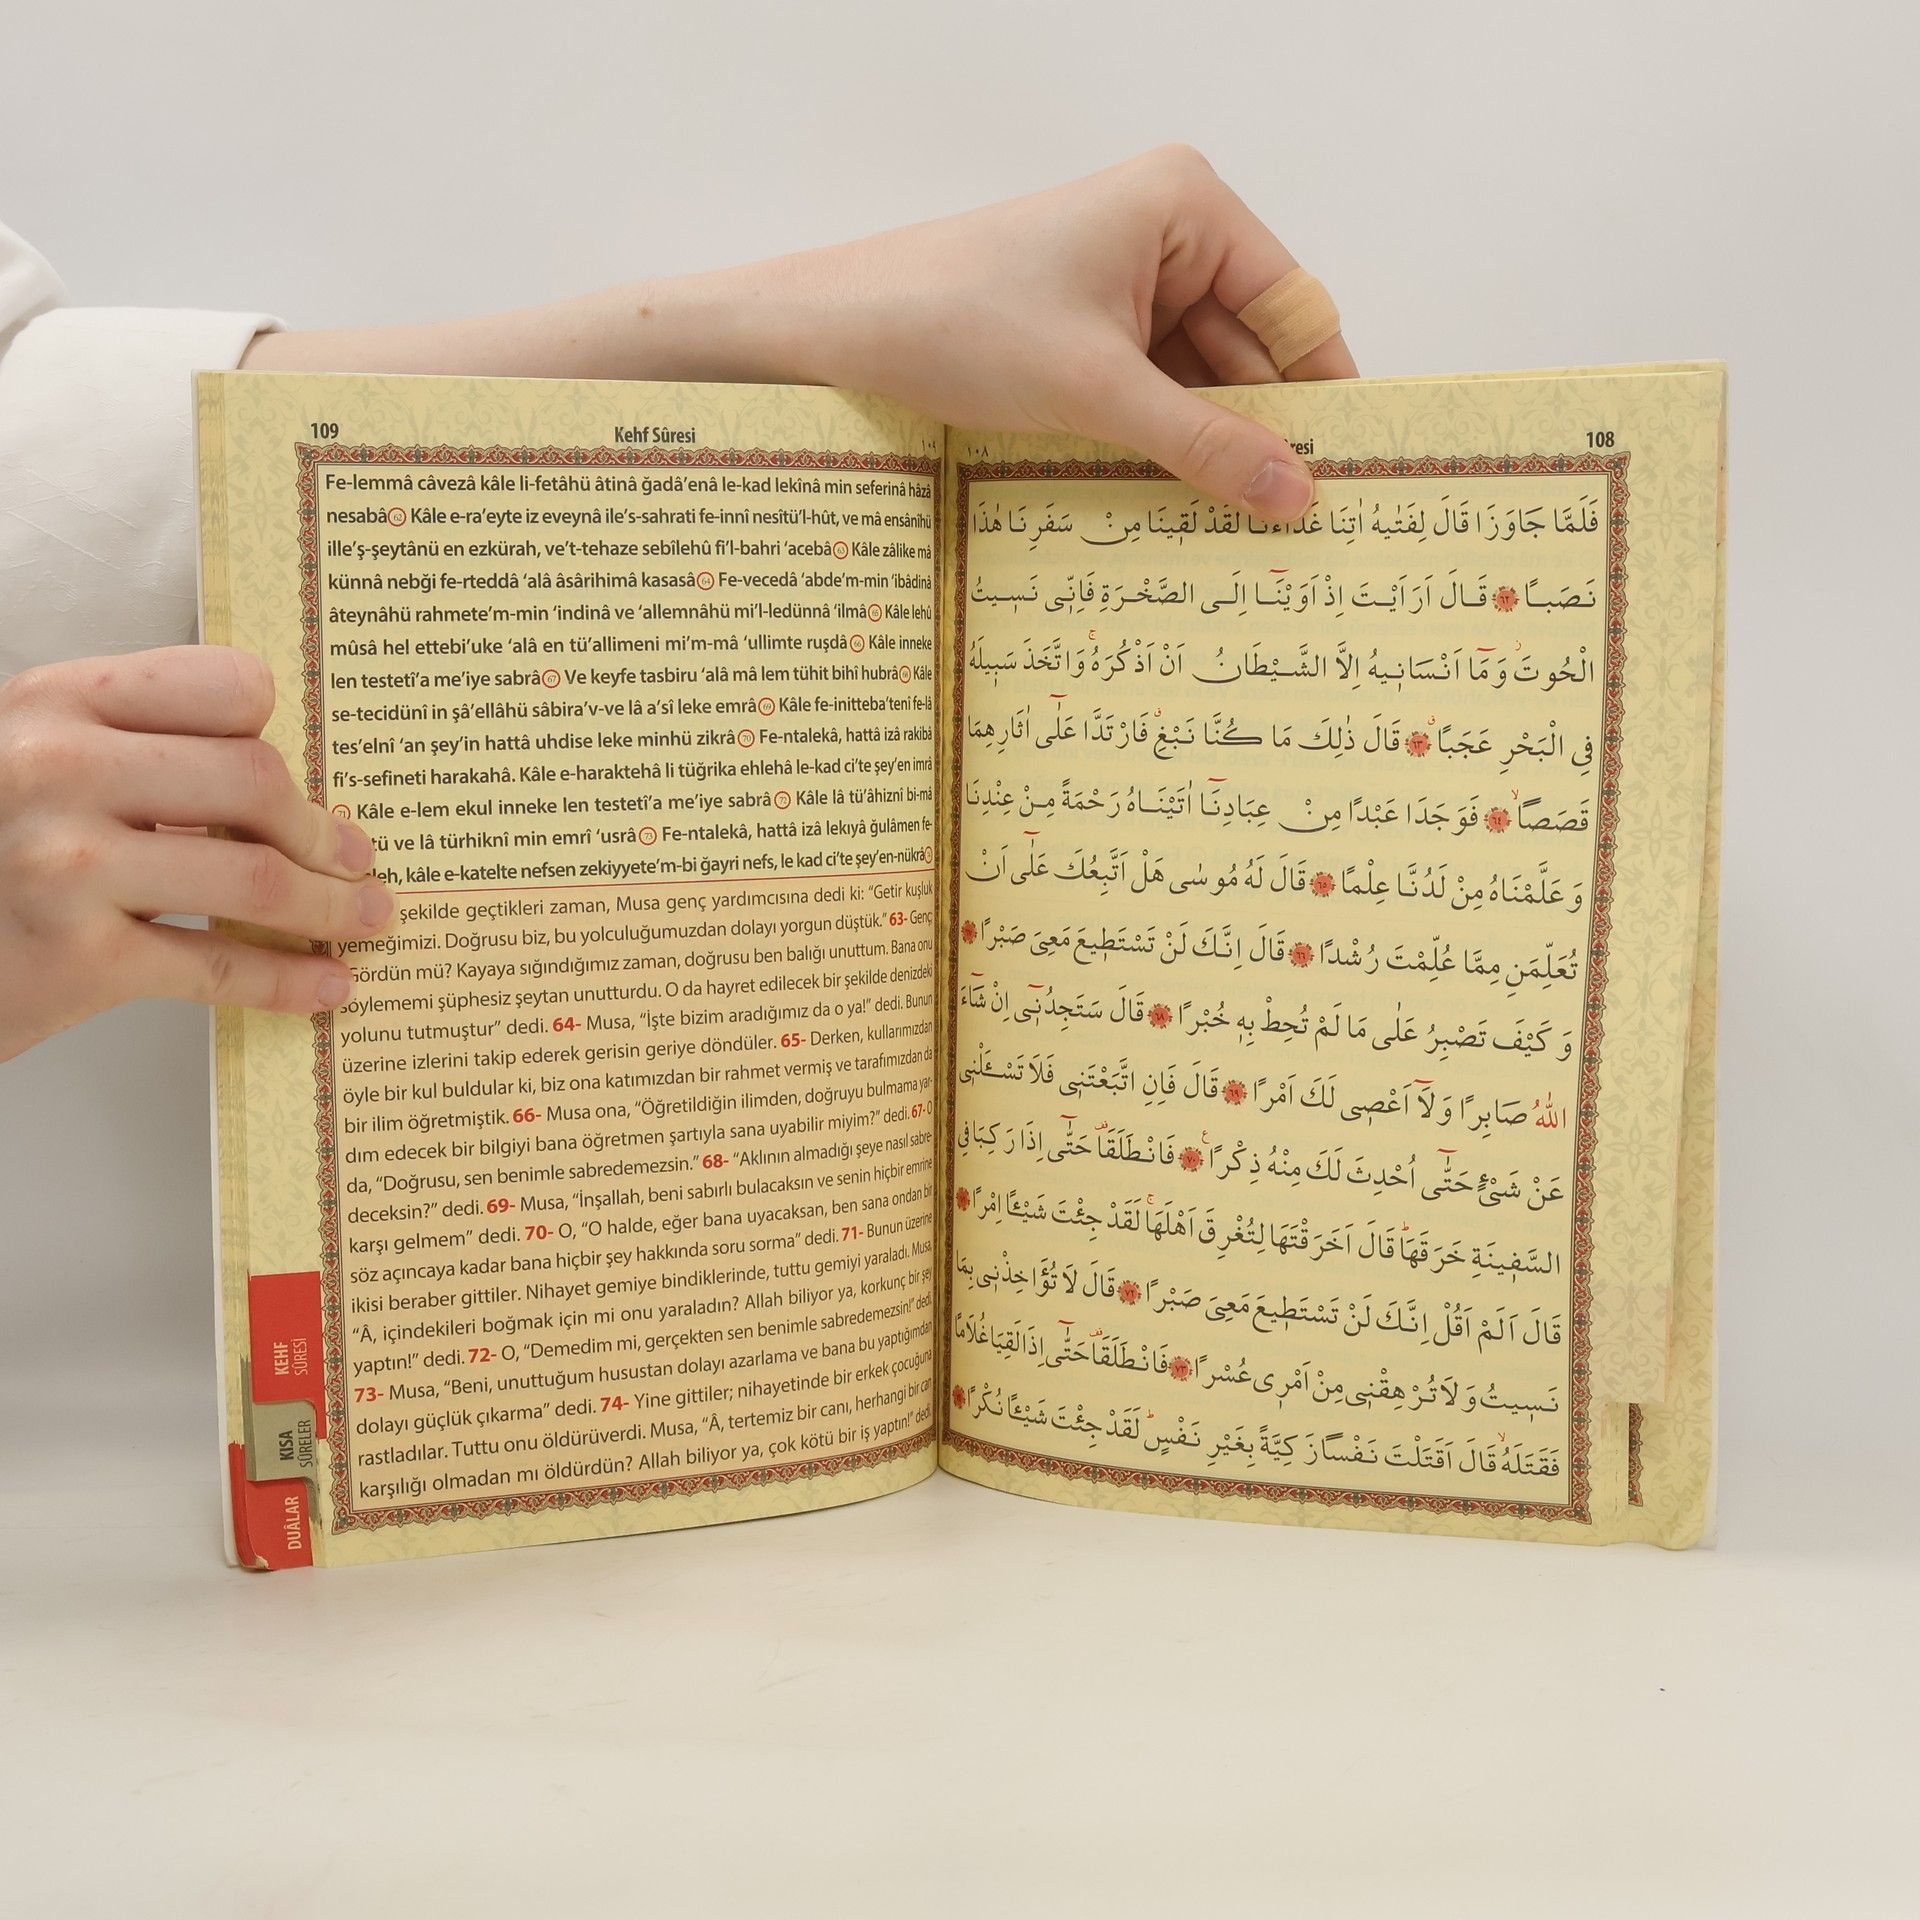 109
Kehf Sûresi
١٠٩
Fe-lemmâ câvezâ kâle li-fetâhü âtinâ ğadâ’enâ le-kad lekînâ min seferinâ hâzâ
nesabâ 62 Kâle e-ra’eyte iz eveynâ ile’s-sahrati fe-innî nesîtü’l-hût, ve mâ ensânîhü
ille’ş-şeytânü en ezkürah, ve’t-tehaze sebîlehû fi’l-bahri ‘acebâ 63 Kâle zâlike mâ
künnâ nebği fe-rteddâ ‘alâ âsârihimâ kasasâ 64 Fe-vecedâ ‘abde’m-min ‘ibâdinâ
âteynâhü rahmete’m-min ‘indinâ ve ‘allemnâhü mi’l-ledünnâ ‘ilmâ 65 Kâle lehû
mûsâ hel ettebi’uke ‘alâ en tü’allimeni mi’m-mâ ‘ullimte ruşdâ 66 Kâle inneke
len testetî’a me’iye sabrâ 67 Ve keyfe tasbiru ‘alâ mâ lem tühit bihî hubrâ 68 Kâle
se-tecidünî in şâ’ellâhü sâbira’v-ve lâ a’sî leke emrâ 69 Kâle fe-initteba’tenî fe-lâ
tes’elnî ‘an şey’in hattâ uhdise leke minhü zikrâ 70 Fe-ntalekâ, hattâ izâ rakibâ
fi’s-sefineti harakahâ. Kâle e-haraktehâ li tüğrika ehlehâ le-kad ci’te şey’en imrâ
71 Kâle e-lem ekul inneke len testetî’a me’iye sabrâ 72 Kâle lâ tü’âhiznî bi-mâ
tü ve lâ türhiknî min emrî ‘usrâ 73 Fe-ntalekâ, hattâ izâ lekıyâ ğulâmen fe-
leh, kâle e-katelte nefsen zekiyyete’m-bi ğayri nefs, le kad ci’te şey’en-nükrâ
şekilde geçtikleri zaman, Musa genç yardımcısına dedi ki: “Getir kuşluk
yemeğimizi. Doğrusu biz, bu yolculuğumuzdan dolayı yorgun düştük.” 63- Genç,
“Gördün mü? Kayaya sığındığımız zaman, doğrusu ben balığı unuttum. Bana onu
söylememi şüphesiz şeytan unutturdu. O da hayret edilecek bir şekilde denizdeki
yolunu tutmuştur” dedi. 64- Musa, “İşte bizim aradığımız da o ya!” dedi. Bunun
üzerine izlerini takip ederek gerisin geriye döndüler. 65- Derken, kullarımızdan
öyle bir kul buldular ki, biz ona katımızdan bir rahmet vermiş ve tarafımızdan da
bir ilim öğretmiştik. 66- Musa ona, “Öğretildiğin ilimden, doğruyu bulmama yar-
dım edecek bir bilgiyi bana öğretmen şartıyla sana uyabilir miyim?” dedi. 67- O
da, “Doğrusu, sen benimle sabredemezsin.” 68- “Aklının almadığı şeye nasıl sabre-
deceksin?” dedi. 69- Musa, “İnşallah, beni sabırlı bulacaksın ve senin hiçbir emrine
karşı gelmem” dedi. 70- O, “O halde, eğer bana uyacaksan, ben sana ondan bir
söz açıncaya kadar bana hiçbir şey hakkında soru sorma” dedi. 71- Bunun üzerine
ikisi beraber gittiler. Nihayet gemiye bindiklerinde, tuttu gemiyi yaraladı. Musa,
“Â, içindekileri boğmak için mi onu yaraladın? Allah biliyor ya, korkunç bir şey
yaptın!” dedi. 72- O, “Demedim mi, gerçekten sen benimle sabredemezsin!” dedi.
73- Musa, “Beni, unuttuğum husustan dolayı azarlama ve bana bu yaptığımdan
dolayı güçlük çıkarma” dedi. 74- Yine gittiler; nihayetinde bir erkek çocuğuna
rastladılar. Tuttu onu öldürüverdi. Musa, “Â, tertemiz bir canı, herhangi bir can
karşılığı olmadan mı öldürdün? Allah biliyor ya, çok kötü bir iş yaptın!” dedi.
KEHF
SÛRESİ
KISA
SÛRELER
DUÂLAR
١٠٨
resi
108
فَلَمَّا جَاوَزَا قَالَ لِفَتٰيهُ اٰتِنَا غَدَٓاءَنَا لَقَدْ لَقِينَا مِنْ سَفَرِنَا هٰذَا
نَصَبًا ٦٢ قَالَ اَرَاَيْتَ اِذْ اَوَيْنَٓا اِلَى الصَّخْرَةِ فَاِنِّى نَسِيتُ
الْحُوتَ وَمَٓا اَنْسَانِيهُ اِلَّا الشَّيْطَانُ اَنْ اَذْكُرَهُ وَاتَّخَذَ سَبِيلَهُ
فِى الْبَحْرِ عَجَبًا ٦٣ قَالَ ذٰلِكَ مَا كُنَّا نَبْغِ فَارْتَدَّا عَلٰٓى اٰثَارِهِمَا
قَصَصًا ٦٤ فَوَجَدَا عَبْدًا مِنْ عِبَادِنَٓا اٰتَيْنَاهُ رَحْمَةً مِنْ عِنْدِنَا
وَعَلَّمْنَاهُ مِنْ لَدُنَّا عِلْمًا ٦٥ قَالَ لَهُ مُوسٰى هَلْ اَتَّبِعُكَ عَلٰٓى اَنْ
تُعَلِّمَنِ مِمَّا عُلِّمْتَ رُشْدًا ٦٦ قَالَ اِنَّكَ لَنْ تَسْتَطِيعَ مَعِىَ صَبْرًا
وَكَيْفَ تَصْبِرُ عَلٰى مَا لَمْ تُحِطْ بِهِ خُبْرًا ٦٨ قَالَ سَتَجِدُنِٓى اِنْ شَٓاءَ
اللّٰهُ صَابِرًا وَلَٓا اَعْصِى لَكَ اَمْرًا ٦٩ قَالَ فَاِنِ اتَّبَعْتَنِى فَلَا تَسْـَٔلْنِى
عَنْ شَىْءٍ حَتّٰٓى اُحْدِثَ لَكَ مِنْهُ ذِكْرًا ٧٠ فَانْطَلَقَا حَتّٰٓى اِذَا رَكِبَا فِى
السَّفِينَةِ خَرَقَهَا قَالَ اَخَرَقْتَهَا لِتُغْرِقَ اَهْلَهَا لَقَدْ جِئْتَ شَيْـًٔا اِمْرًا
قَالَ اَلَمْ اَقُلْ اِنَّكَ لَنْ تَسْتَطِيعَ مَعِىَ صَبْرًا ٧٢ قَالَ لَا تُؤَاخِذْنِى بِمَا
نَسِيتُ وَلَا تُرْهِقْنِى مِنْ اَمْرِى عُسْرًا ٧٣ فَانْطَلَقَا حَتّٰٓى اِذَا لَقِيَا غُلَامًا
فَقَتَلَهُ قَالَ اَقَتَلْتَ نَفْسًا زَكِيَّةً بِغَيْرِ نَفْسٍ لَقَدْ جِئْتَ شَيْـًٔا نُكْرًا